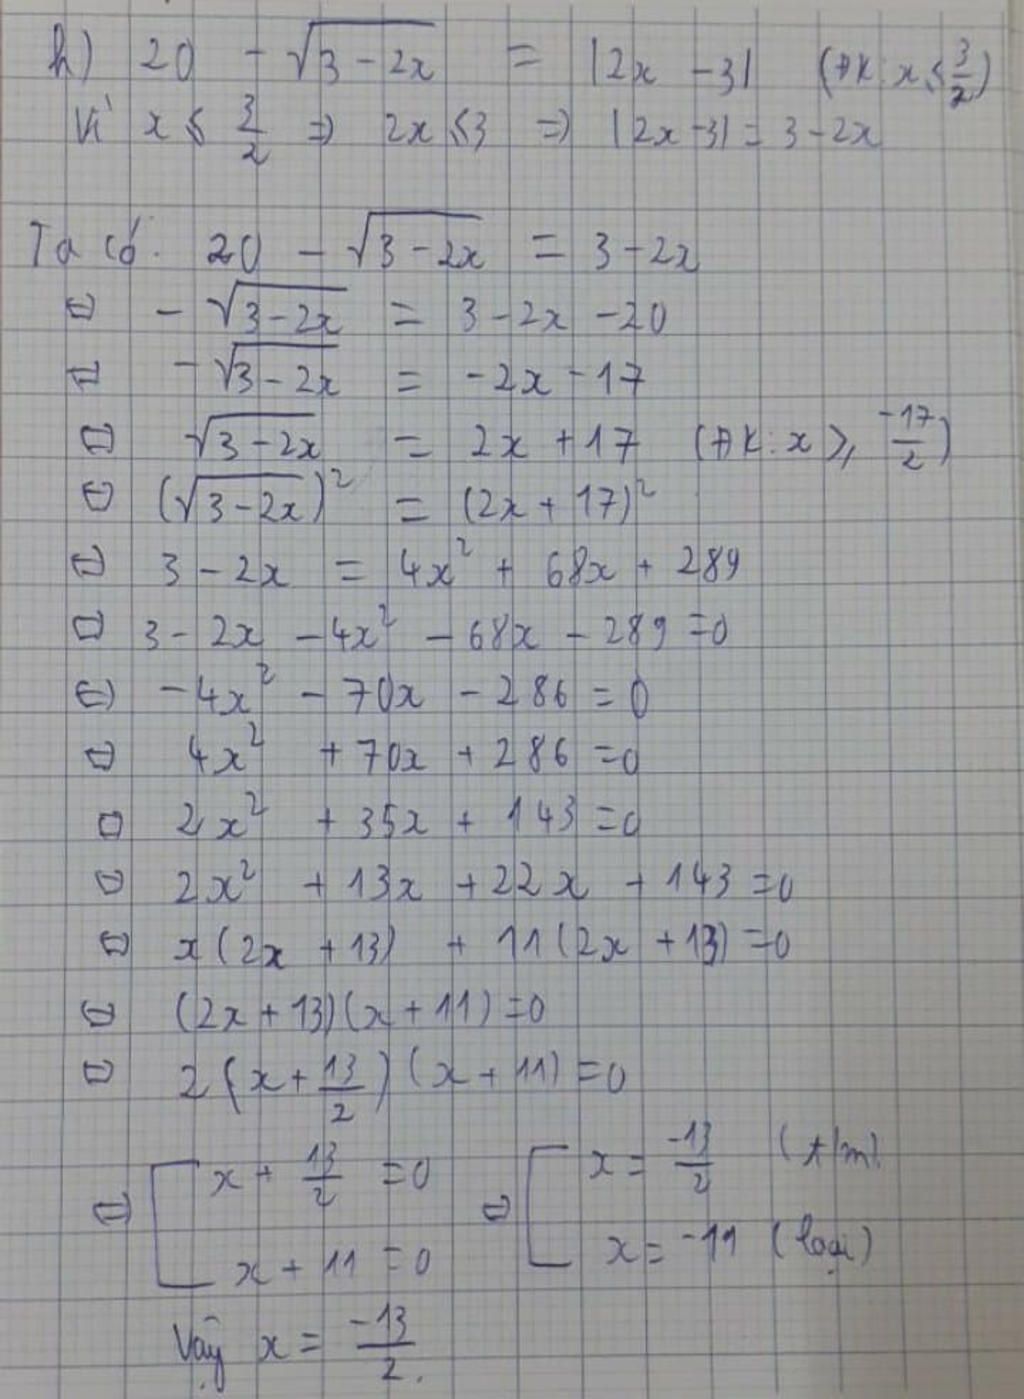 h) 20 - √(3-2x) = |2x -3| (ĐK: x ≤ 3/2)
Vì x ≤ 3/2 => 2x ≤ 3 => |2x-3| = 3-2x
Ta có: 20 - √(3-2x) = 3-2x
⇔ - √(3-2x) = 3-2x -20
⇔ - √(3-2x) = -2x -17
⇔ √(3-2x) = 2x +17 (ĐK: x ≥ -17/2)
⇔ (√(3-2x))² = (2x+17)²
⇔ 3-2x = 4x² + 68x + 289
⇔ 3- 2x -4x² - 68x - 289 =0
⇔ -4x² - 70x - 286 = 0
⇔ 4x² +70x + 286 =0
⇔ 2x² + 35x + 143 =0
⇔ 2x² + 13x +22x + 143 =0
⇔ x(2x +13) + 11(2x +13) =0
⇔ (2x+13)(x+11)=0
⇔ 2(x+13/2)(x+11)=0
⇔ [ x+ 13/2 =0 ⇔ [ x= -13/2 (t/m).
x+11 =0 x= -11 (loại)
Vậy x = -13/2.